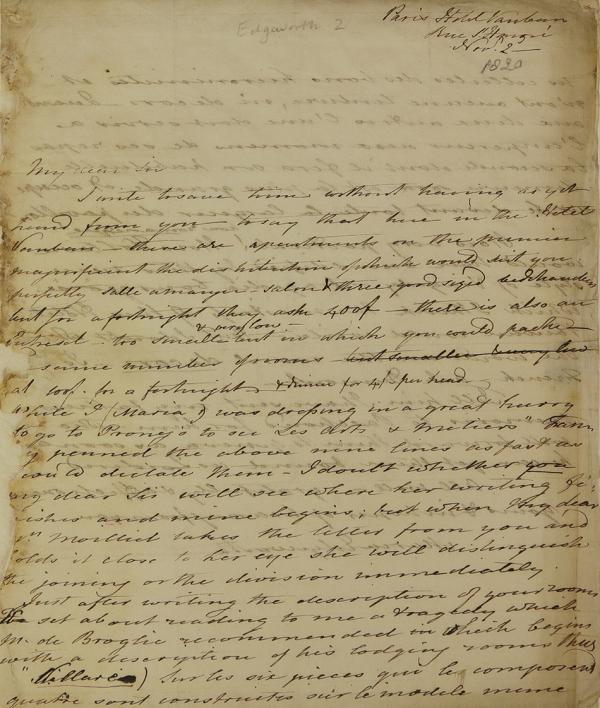 Edgeworth 2
Paris Hotel Vauban
Rue St Honoré
Novr. 2
1820
My dear Sir
I write to save time without having as yet
heard from you to say that here in the Hotel
Vauban there are apartments on the premier
magnificent the distribution of which would suit you
perfectly salle a manger salon & three good sized bedchambers
but for a fortnight they ask 400f — there is also an
entresol — too small but in which you could pack —
& very low
same number of rooms but smaller & very low
at 200f. for a fortnight & dinner for 4f. per head
While I (Maria) was dressing in a great hurry
to go to Prony's to see "Les Arts & Metiers" Fan
y penned the above nine lines as fast as
could dictate them — I doubt whether you
my dear Sir will see where her writing fi-
nishes and mine begins; but when my dear
Moilliet takes the letter from you and
holds it close to her eye she will distinguish
the joining or the division immediately.
Just after writing the description of your rooms
set about reading to me a tragedy which
M. de Broglie recommended which begins
with a description of his lodging rooms Thus
Sur les six pieces qui le composent
quatre sont construites sur le modele meme